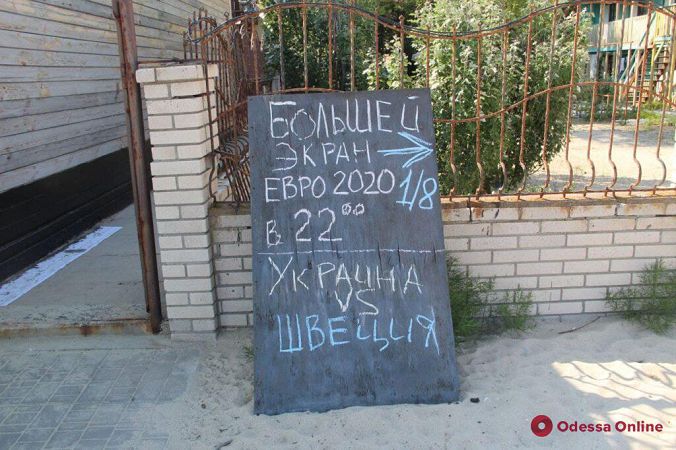 БОЛЬШЕЙ
ЭКРАН →
ЕВРО 2020 1/8
В 22⁰⁰
УКРАИНА
VS
ШВЕЦИЯ
Odessa Online